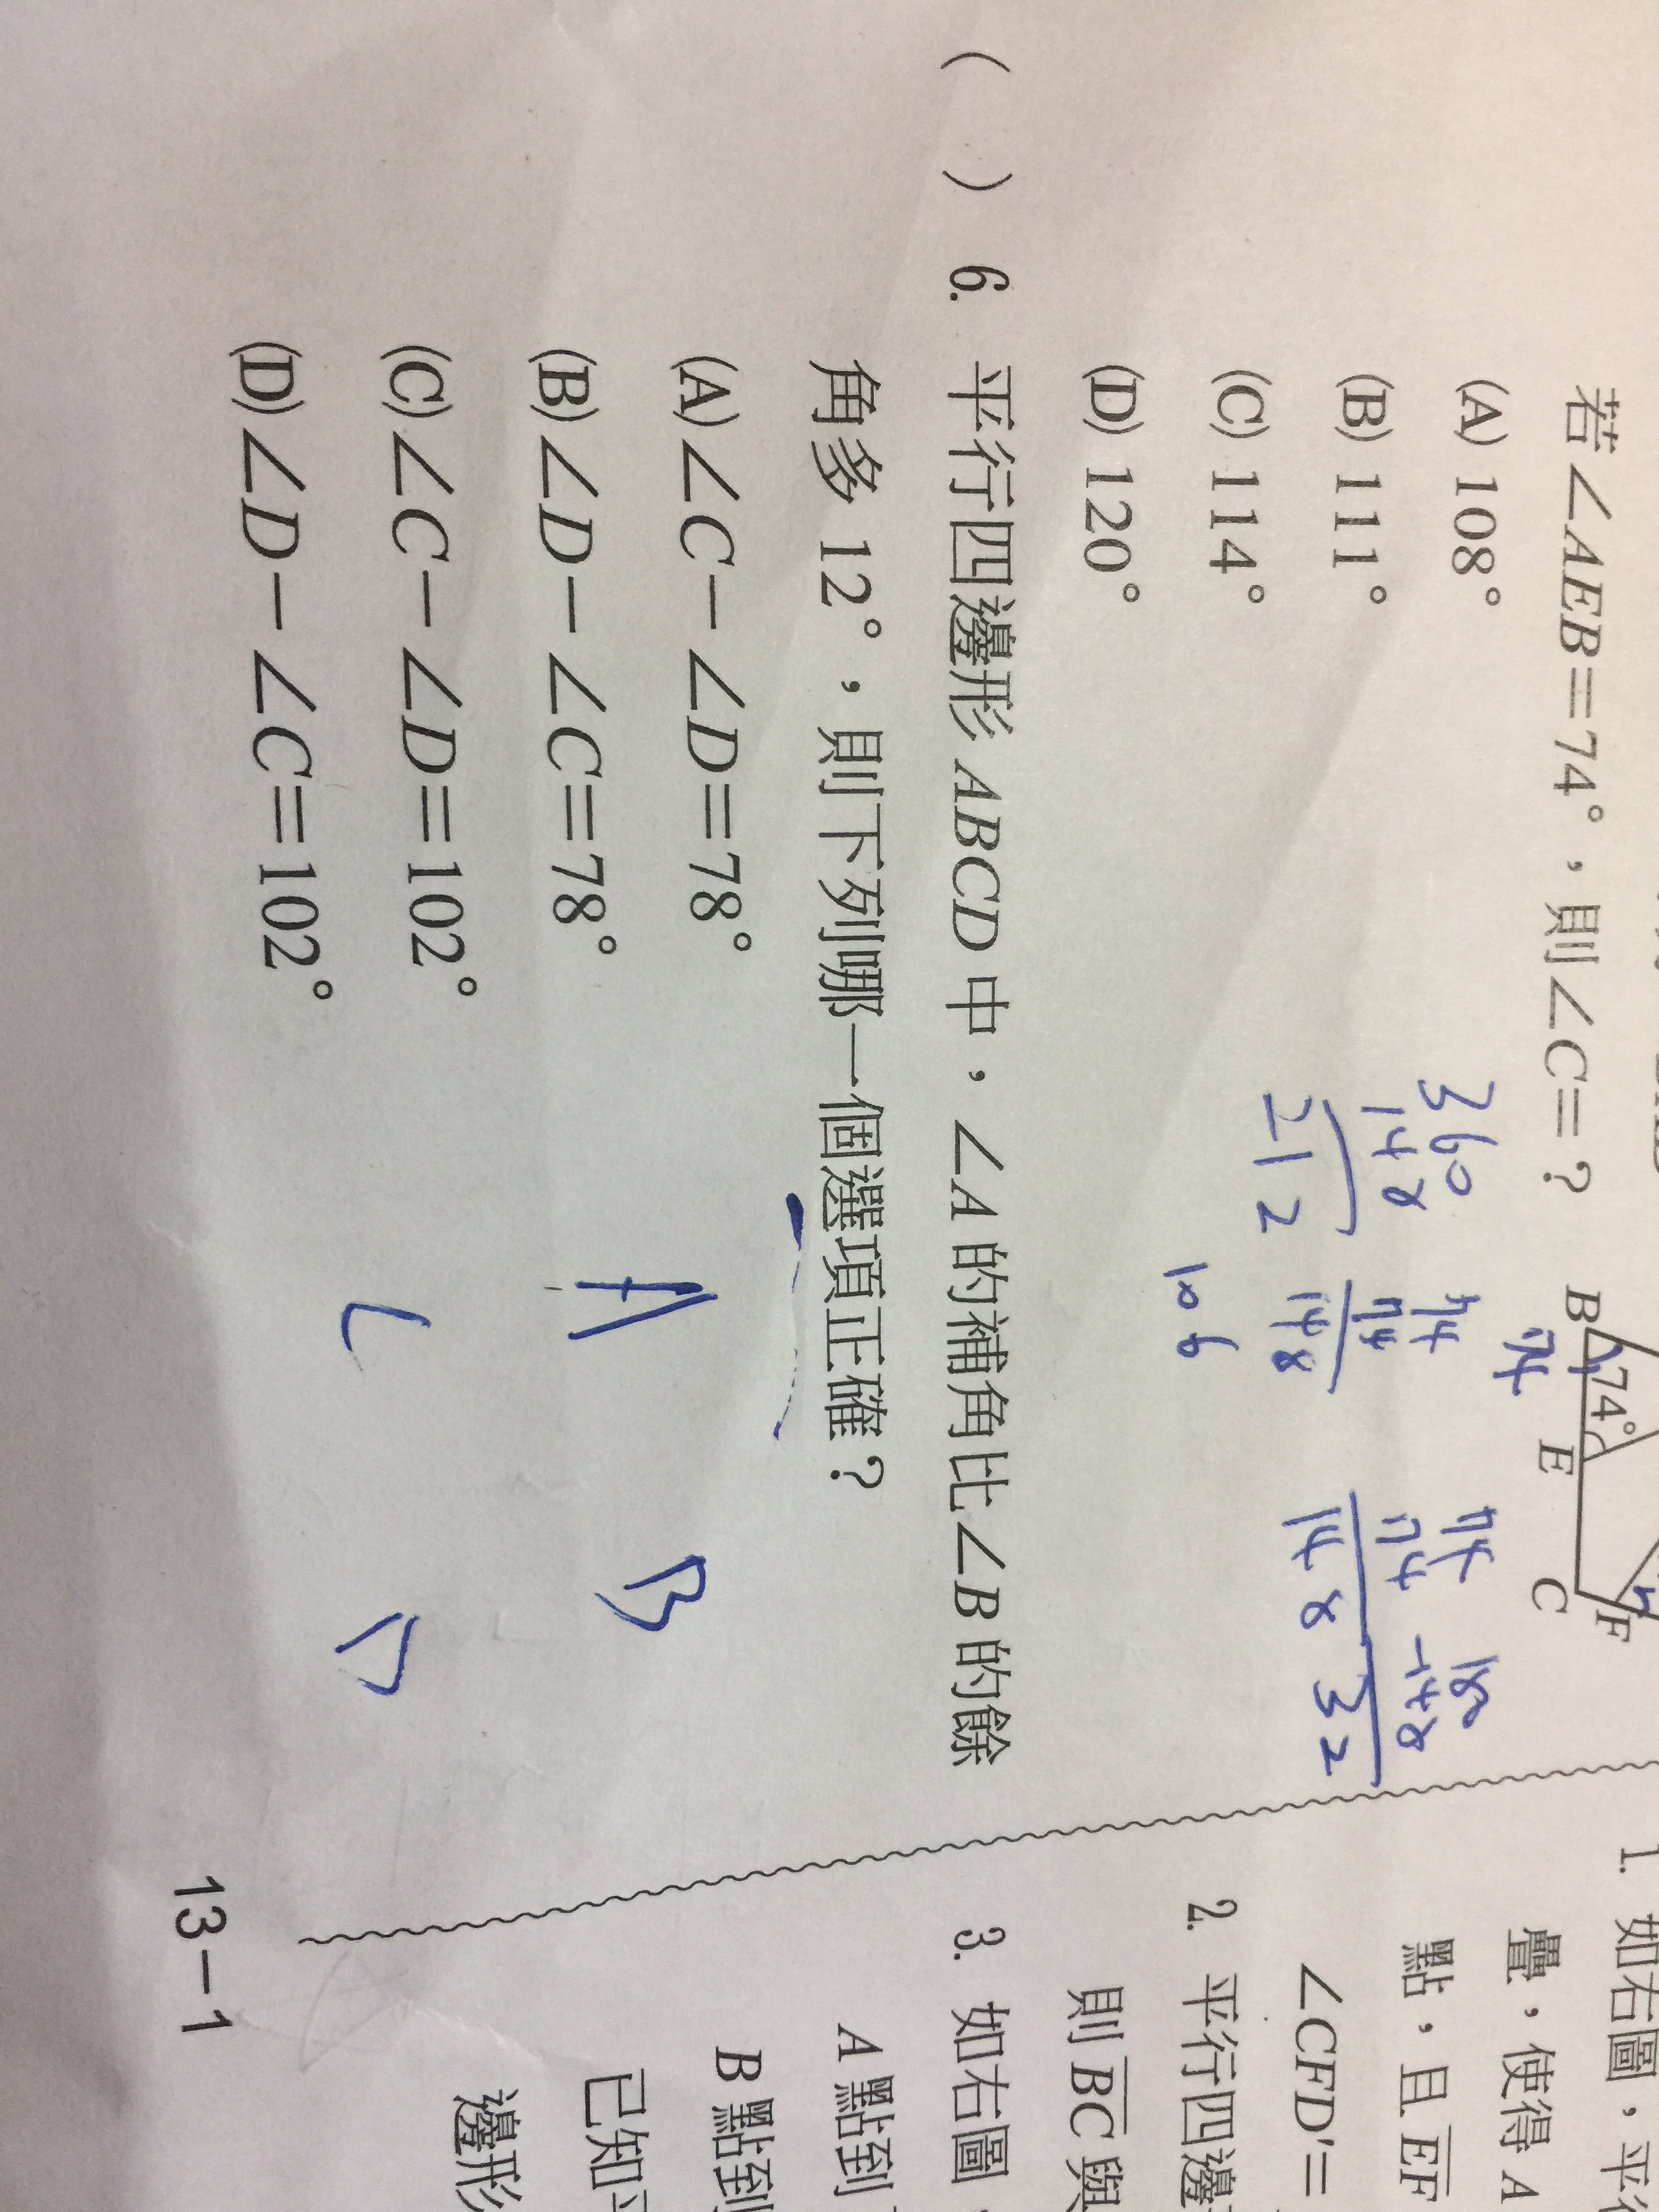 若∠AEB=74°,則∠C=?
(A) 108°
(B) 111°
(C) 114°
(D) 120°
B 74° E C F
74
360
148
212
74
74
148
106
74
74
148
180
148
32
( ) 6. 平行四邊形 ABCD 中,∠A 的補角比∠B 的餘
角多 12°,則下列哪一個選項正確?
(A) ∠C-∠D=78°
(B) ∠D-∠C=78°
(C) ∠C-∠D=102°
(D) ∠D-∠C=102°
A B
C D
1. 如右圖,平行
疊,使得 A
點,且 EF
∠CFD'=
2. 平行四邊
則 BC 與
3. 如右圖,
A 點到
B 點到
已知平
邊形
13-1